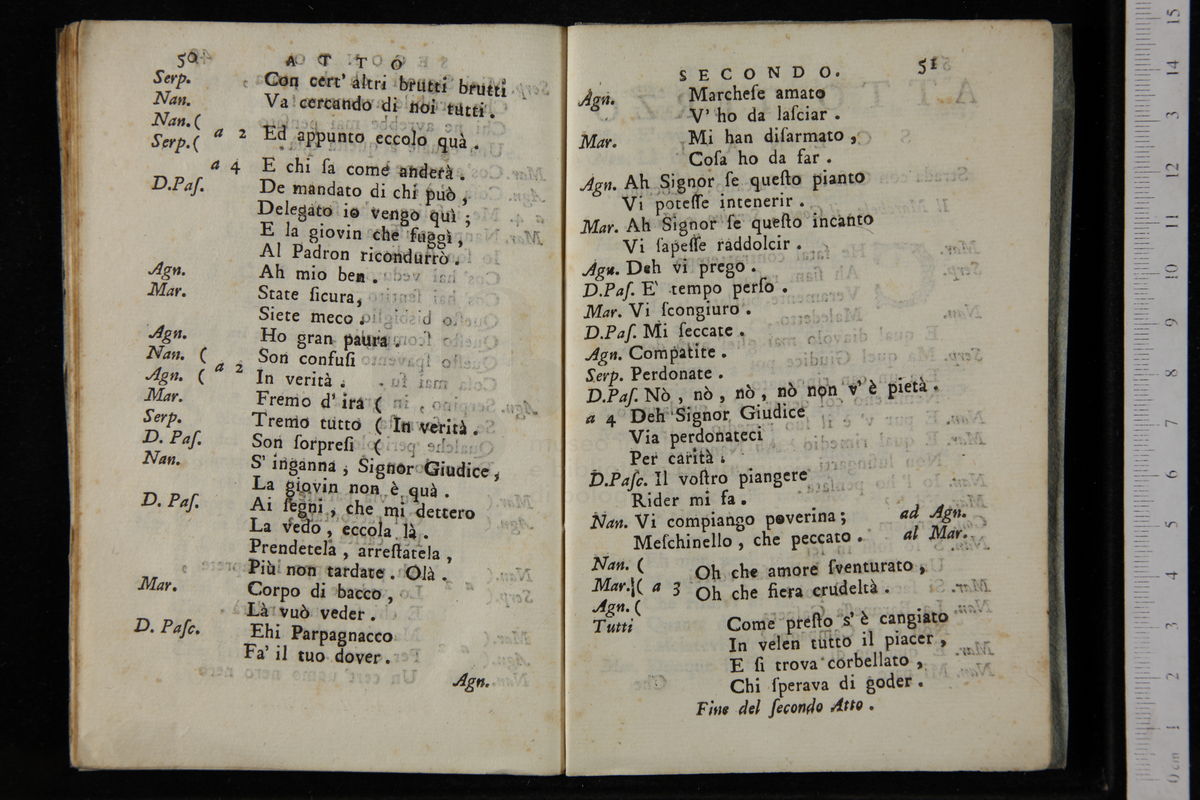 50 ATTO
Serp. Con cert' altri brutti brutti
Nan. Va cercando di noi tutti.
Nan. (
Serp. ( a 2 Ed appunto eccolo quà.
a 4 E chi ſa come anderà.
D.Paſ. De mandato di chi può,
Delegato io vengo quì;
E la giovin che fuggì,
Al Padron ricondurrò.
Agn. Ah mio ben.
Mar. State ſicura,
Siete meco.
Agn. Ho gran paura.
Nan. ( a 2 Son confuſi
Agn. ( In verità.
Mar. Fremo d' ira (
Serp. Tremo tutto ( In verità.
D. Paſ. Son ſorpreſi (
Nan. S' inganna, Signor Giudice,
La giovin non è quà.
D. Paſ. Ai ſegni, che mi dettero
La vedo, eccola là.
Prendetela, arreſtatela,
Più non tardate. Olà.
Mar. Corpo di bacco,
Là vuò veder.
D. Paſc. Ehi Parpagnacco
Fa' il tuo dover.
Agn.
SECONDO. 51
Agn. Marcheſe amato
V' ho da laſciar.
Mar. Mi han diſarmato,
Coſa ho da far.
Agn. Ah Signor ſe queſto pianto
Vi poteſſe intenerir.
Mar. Ah Signor ſe queſto incanto
Vi ſapeſſe raddolcir.
Agn. Deh vi prego.
D.Paſ. E' tempo perſo.
Mar. Vi ſcongiuro.
D.Paſ. Mi ſeccate.
Agn. Compatite.
Serp. Perdonate.
D.Paſ. Nò, nò, nò, nò non v' è pietà.
a 4 Deh Signor Giudice
Via perdonateci
Per carità.
D.Paſc. Il voſtro piangere
Rider mi fa.
Nan. Vi compiango poverina; ad Agn.
Meſchinello, che peccato. al Mar.
Nan. (
Mar. ( a 3 Oh che amore ſventurato,
Agn. ( Oh che fiera crudeltà.
Tutti Come preſto s' è cangiato
In velen tutto il piacer,
E ſi trova corbellato,
Chi ſperava di goder.
Fine del ſecondo Atto.